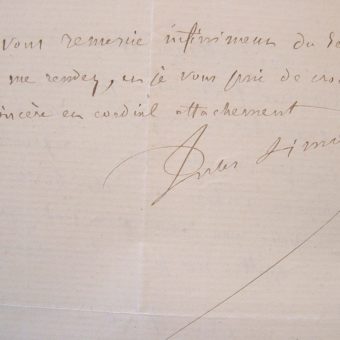 vous remercie infiniment du Se
me rendez, et je vous prie de cro
sincère et cordial attachement
Jules Simo